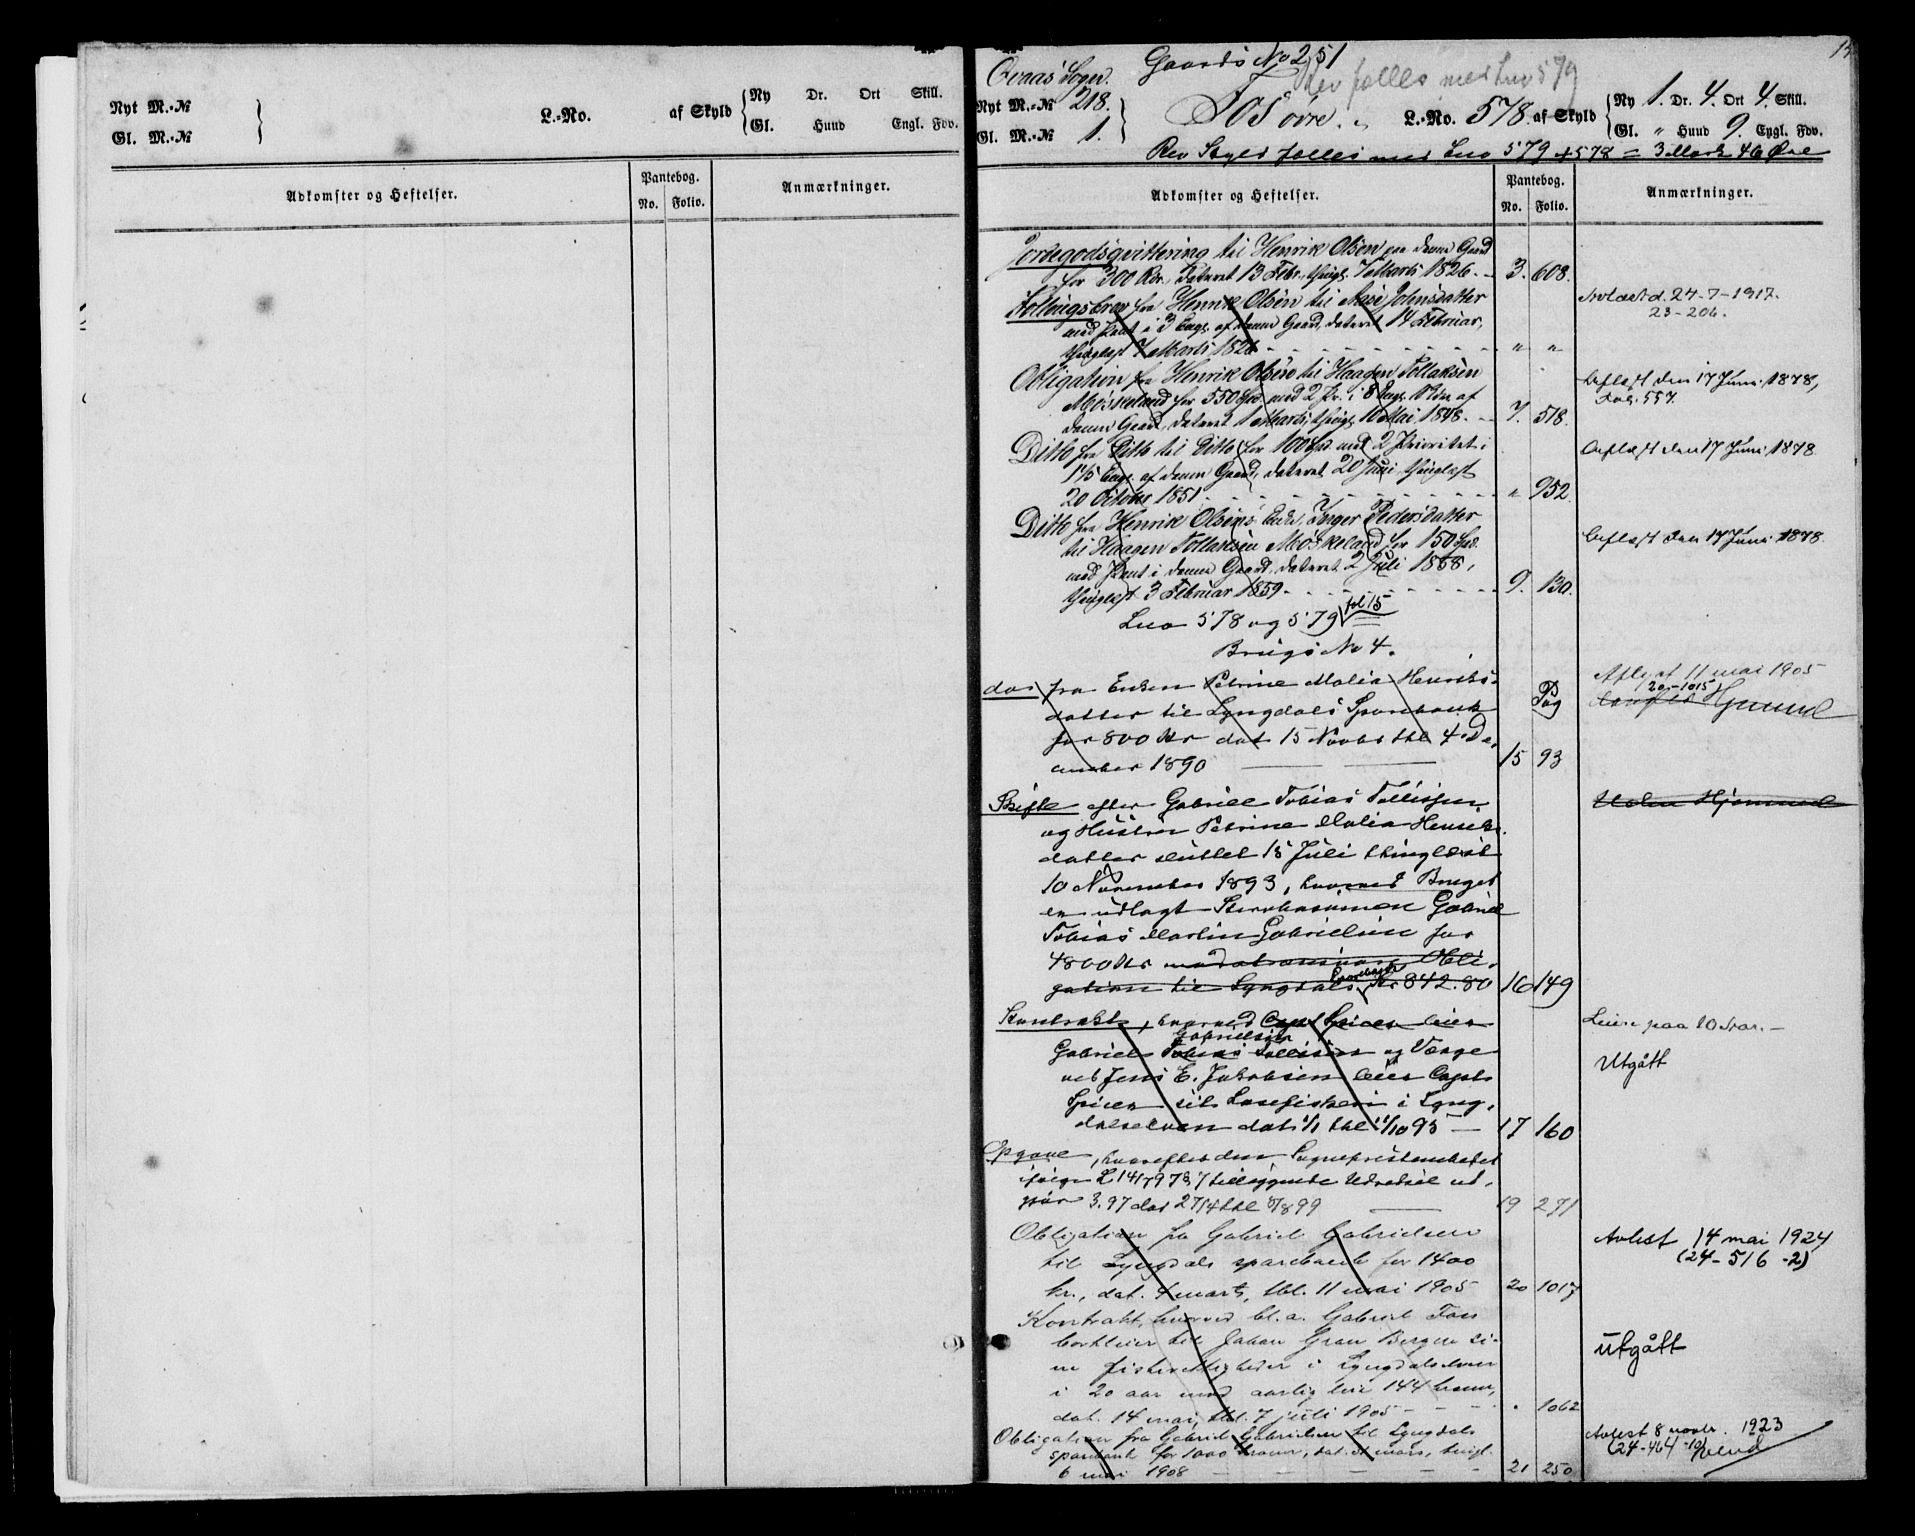 Nyt M.-№
Gl. M.-№
L.-No.
af Skyld
Ny Dr. Ort Skill.
Gl. Hund Engl. Fdv.
Adkomster og Heftelser.
Pantebog.
No. Folio.
Anmærkninger.
Gaards No 251
Rev fælles med Lno 579
Qvaas Sogn.
Nyt M.-№ 218.
Gl. M.-№ 1.
Faa øvre.
L.-No. 578. af Skyld
Ny 1. Dr. 4. Ort 4. Skill.
Gl. " Hund 9. Engl. Fdv.
Rev Skyld fælles med Lno 579 + 578 = 3 Mark 46 Øre
Adkomster og Heftelser.
Pantebog.
No. Folio.
Anmærkninger.
Jordegodsqvittering til Henrik Olsen paa denne Gaard
for 300 Rdr., Dateret 13 Febr., thingl. 7 Marts 1826. 3. 608.
Føllingsbrev fra Henrik Olsen til Aase Johnsdatter
med Pant i 3 Engl. af denne Gaard, dateret 14 Februar,
thinglæst 7 Marts 1826 " "
Avlæst d. 24-7-1917.
23-206.
Obligation fra Henrik Olsen til Haagen Tollaksen
Møskeland for 550 Spd med 2 Pr. i 8 Engl. Rdr. af
denne Gaard, dateret 1 Marts, thingl. 10 Mai 1848. 7. 518.
Aflæst den 17 Juni 1878,
Fol. 557.
Ditto fra Ditto til Ditto for 100 Spd med 2 Prioritet i
1 4/5 Engl. af denne Gaard, dateret 20 Juni, thinglæst
20 October 1851 " 952.
Aflæst den 17 Juni 1878
Ditto fra Henrik Olsens Enke, Inger Pedersdatter
til Haagen Tollaksen Møskeland for 150 Spd.
med Pant i denne Gaard, dateret 2 Juli 1858,
thinglæst 3 Februar 1859. 9. 130.
Aflæst den 17 Juni 1878.
Lno 578 og 579 fol 15
Brugs No 4.
fra Enken Petrine Malia Henriks-
datter til Lyngdals Sparebank
for 800 Kr dat 15 Novbr thl 4 De-
cember 1890 15 93
Pag
Aflyst 11 mai 1905
20-1015
Skifte efter Gabriel Tobias Tollisen
og Hustru Petrine Malia Henriks-
datter sluttet 15 Juli thinglæst
10 November 1893, hvorved Bruget
er udlagt Gabriel
Tobias Martin Gabrielsen for
4800 Kr Obli-
gation til Lyngdals Sparebank Kr 842.80 16 149
Kontrakt, hvorved Capt Spicer leier
Gabriel Tobias Tollisen og Værge
Gabrielsen
ved Jens E. Jakobsen leier Capt.
Spicer sit Laxefiskeri i Lyng-
dalselven dat 1/1 thl 11/10 95 17 160
Leien paa 10 Aar.
Utgått
Opgave, hvorefter den Sognepræstembedet
ifølge L 14/7 97 § 7 tillliggende Udredsel ud-
gjør 3.97 dat 27/4 thl 8/8 99 19 271
Obligation fra Gabriel Gabrielsen
til Lyngdals sparebank for 1400
kr., dat. 4 marts, tbl. 11 mai 1905 20 1017
Avlæst 14 mai 1924
(24-516-2)
Kontrakt, hvorved bl.a. Gabriel Faa
bortleier til Johan Gran Bergen si-
ne fiskerettigheder i Lyngdalselven
i 20 aar mod aarlig leie 144 kroner,
dat. 14 mai, tbl. 7 juli 1905 " 1062
Utgått
Obligation fra Gabriel Gabrielsen til Lyngdals
sparebank for 1000 kroner, dat. mars, tingl.
6 mai 1908 21 250
Avlæst 8 novbr. 1923
(24-464-10)